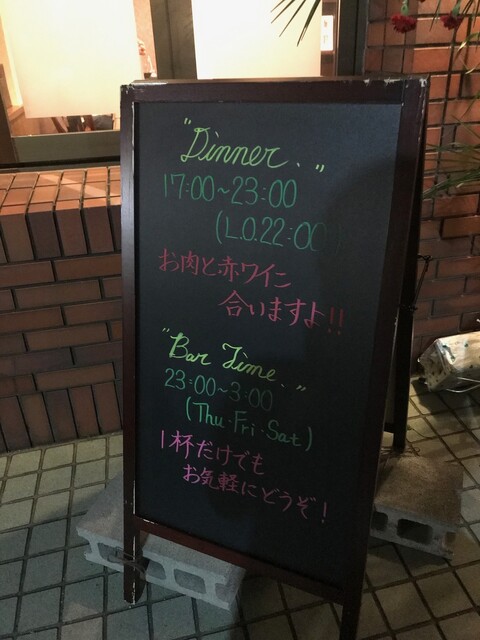 "Dinner."
17:00~23:00
(L.O.22:00)
お肉と赤ワインに
合いますよ!!
"Bar Time."
23:00~3:00
(Thu・Fri・Sat)
1杯だけでも
お気軽にどうぞ!